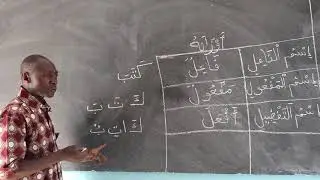 أَوْزَانُهُ
إِسْم الْفَاعِلِ فَاعِلٌ كَتَبَ
إِسْم الْمَفْعُولِ مَفْعُولٌ كَ تَ بَ
إِسْم التَّفْضِيلِ أَفْعَلُ